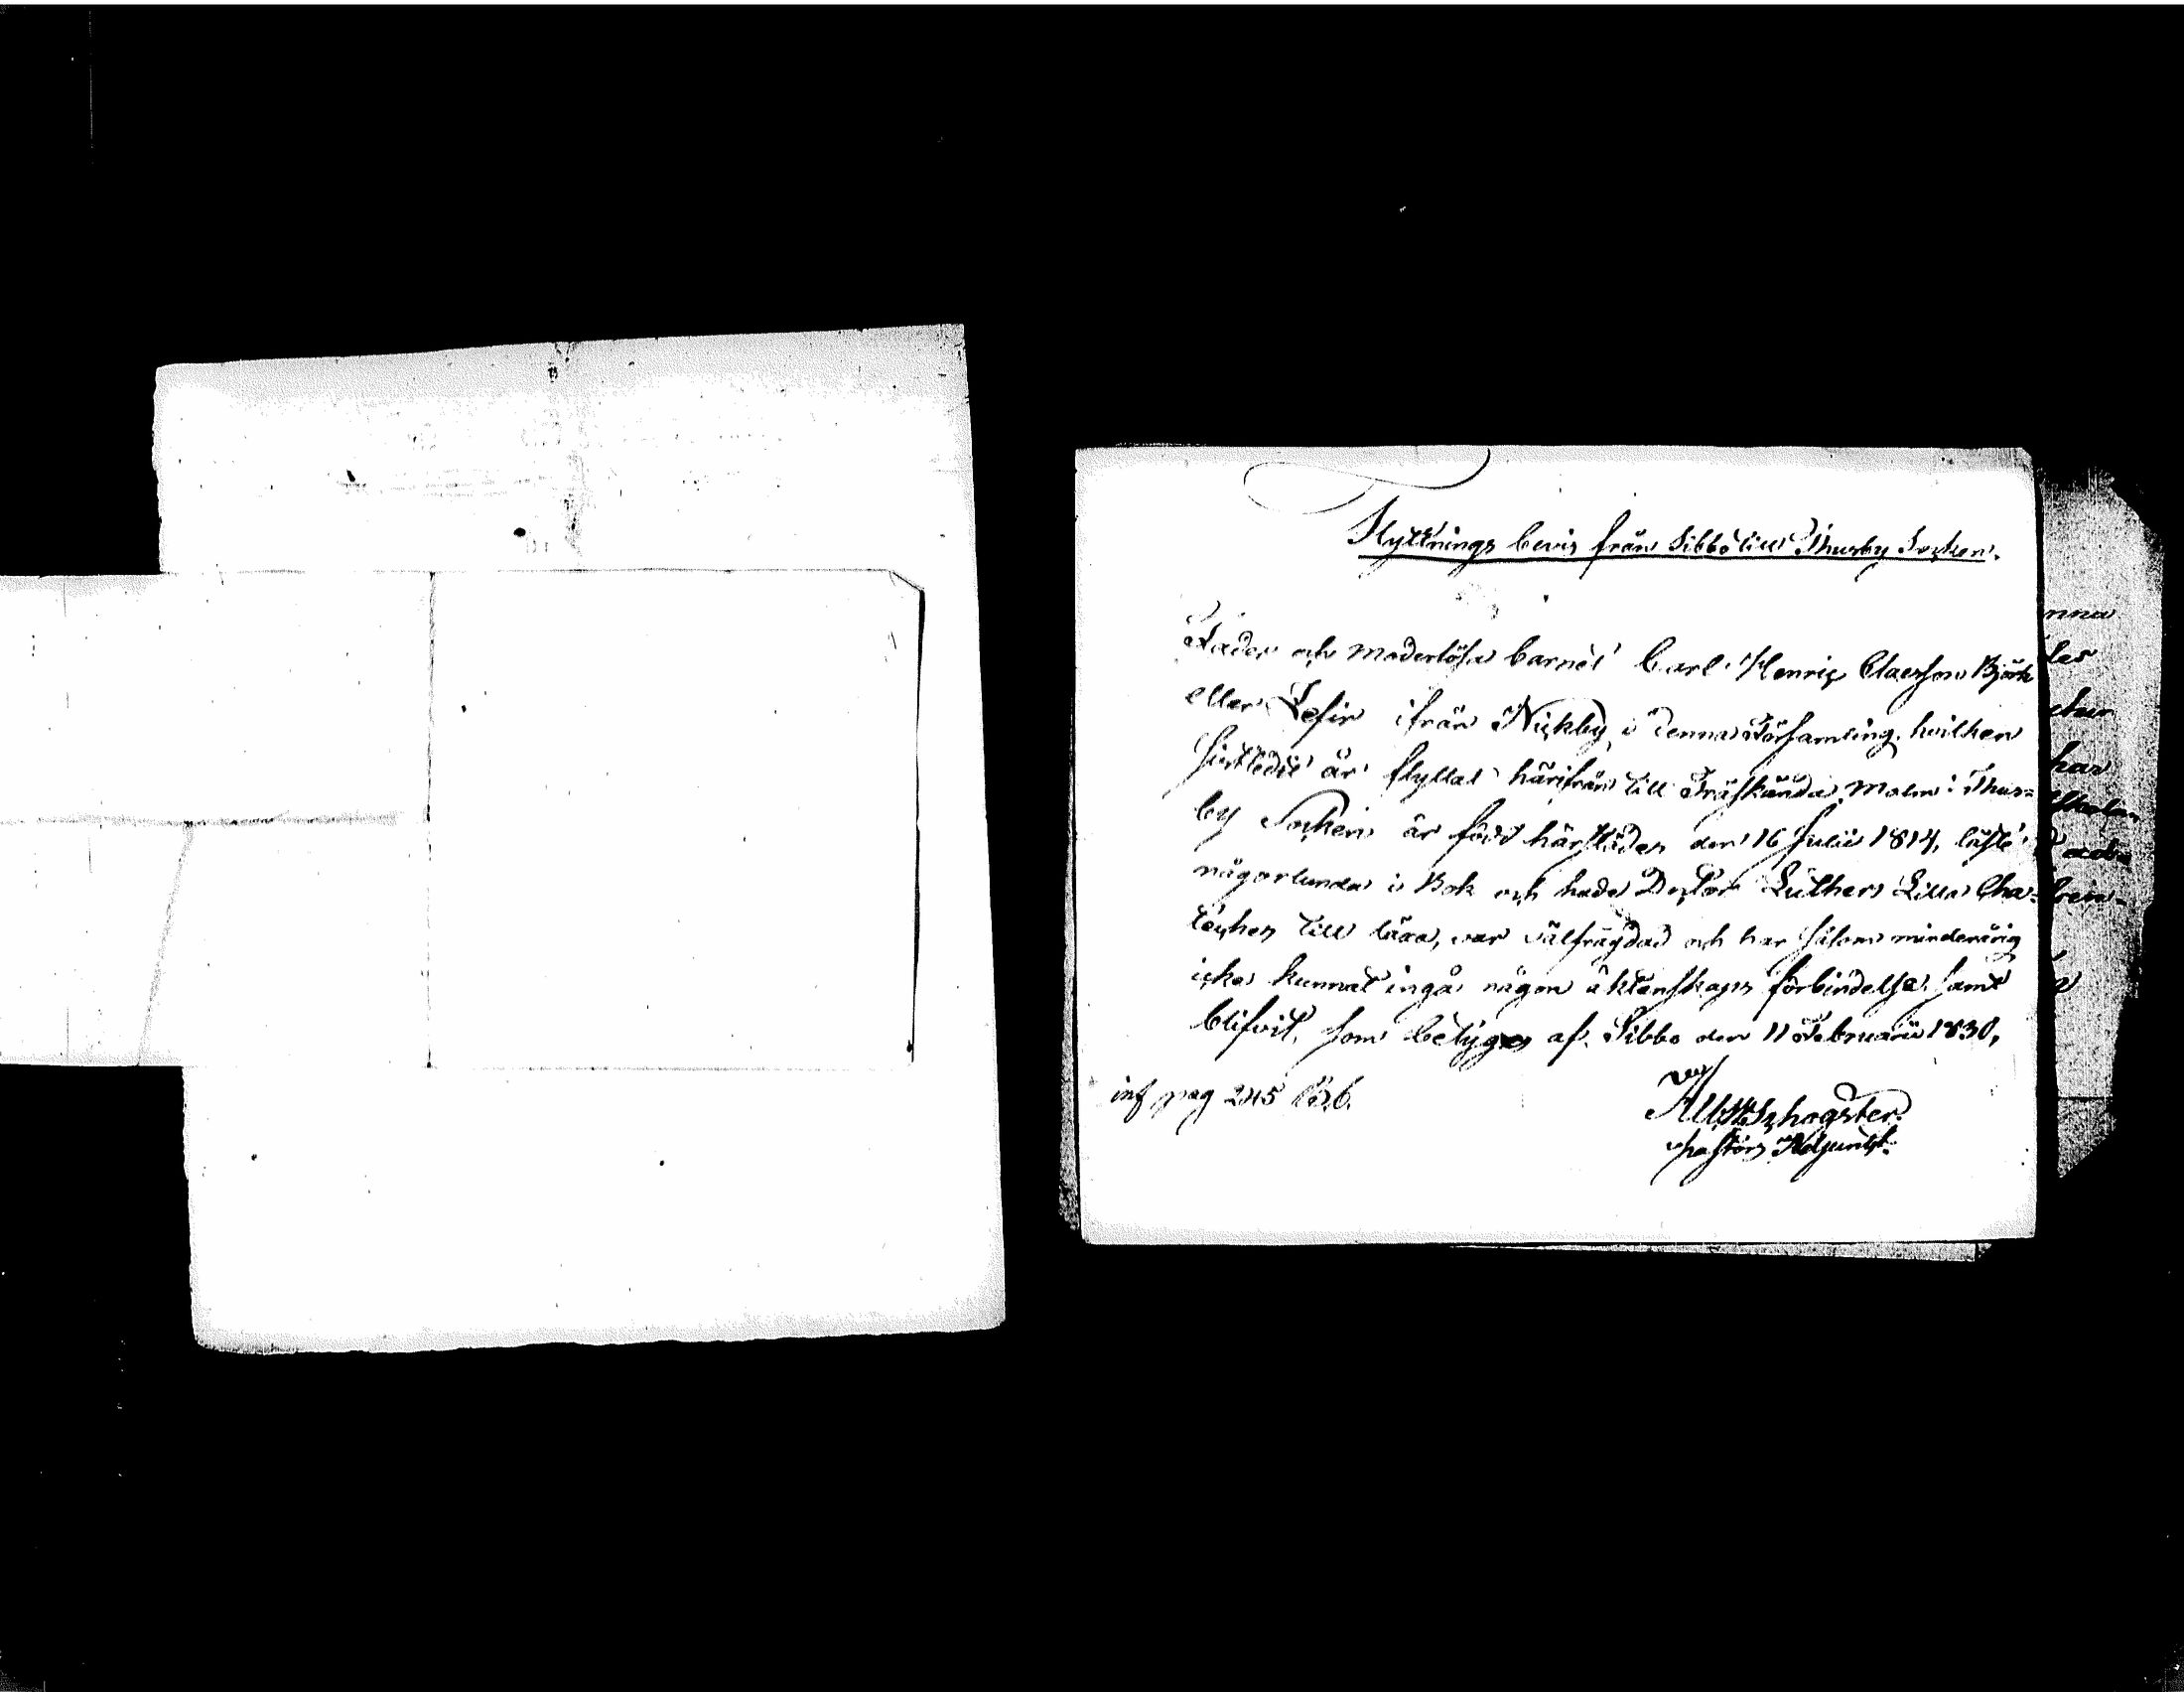 Flyttnings bevis från Sibbo till Thusby Socken.
Fader och moderlösa barnet Carl Henric Claesson Björk
eller Sefir ifrån Nickby i denna Församling, hvilken
sistledit år flyttat härifrån till Träskända Moisio i Thus=
by Socken är född härstädes den 16 Julii 1814, läste
någorlunda i Bok och hade Doctor Luthers Lilla Cha=
teches till lära, var välfrägdad och har såsom minderårig
icke kunnat ingå någon äktenskaps förbindelse, samt
blifvit, som betyges af. Sibbo den 11 Februarii 1830,
inf pag 245
Pastors Adjunct.
nna
des
har